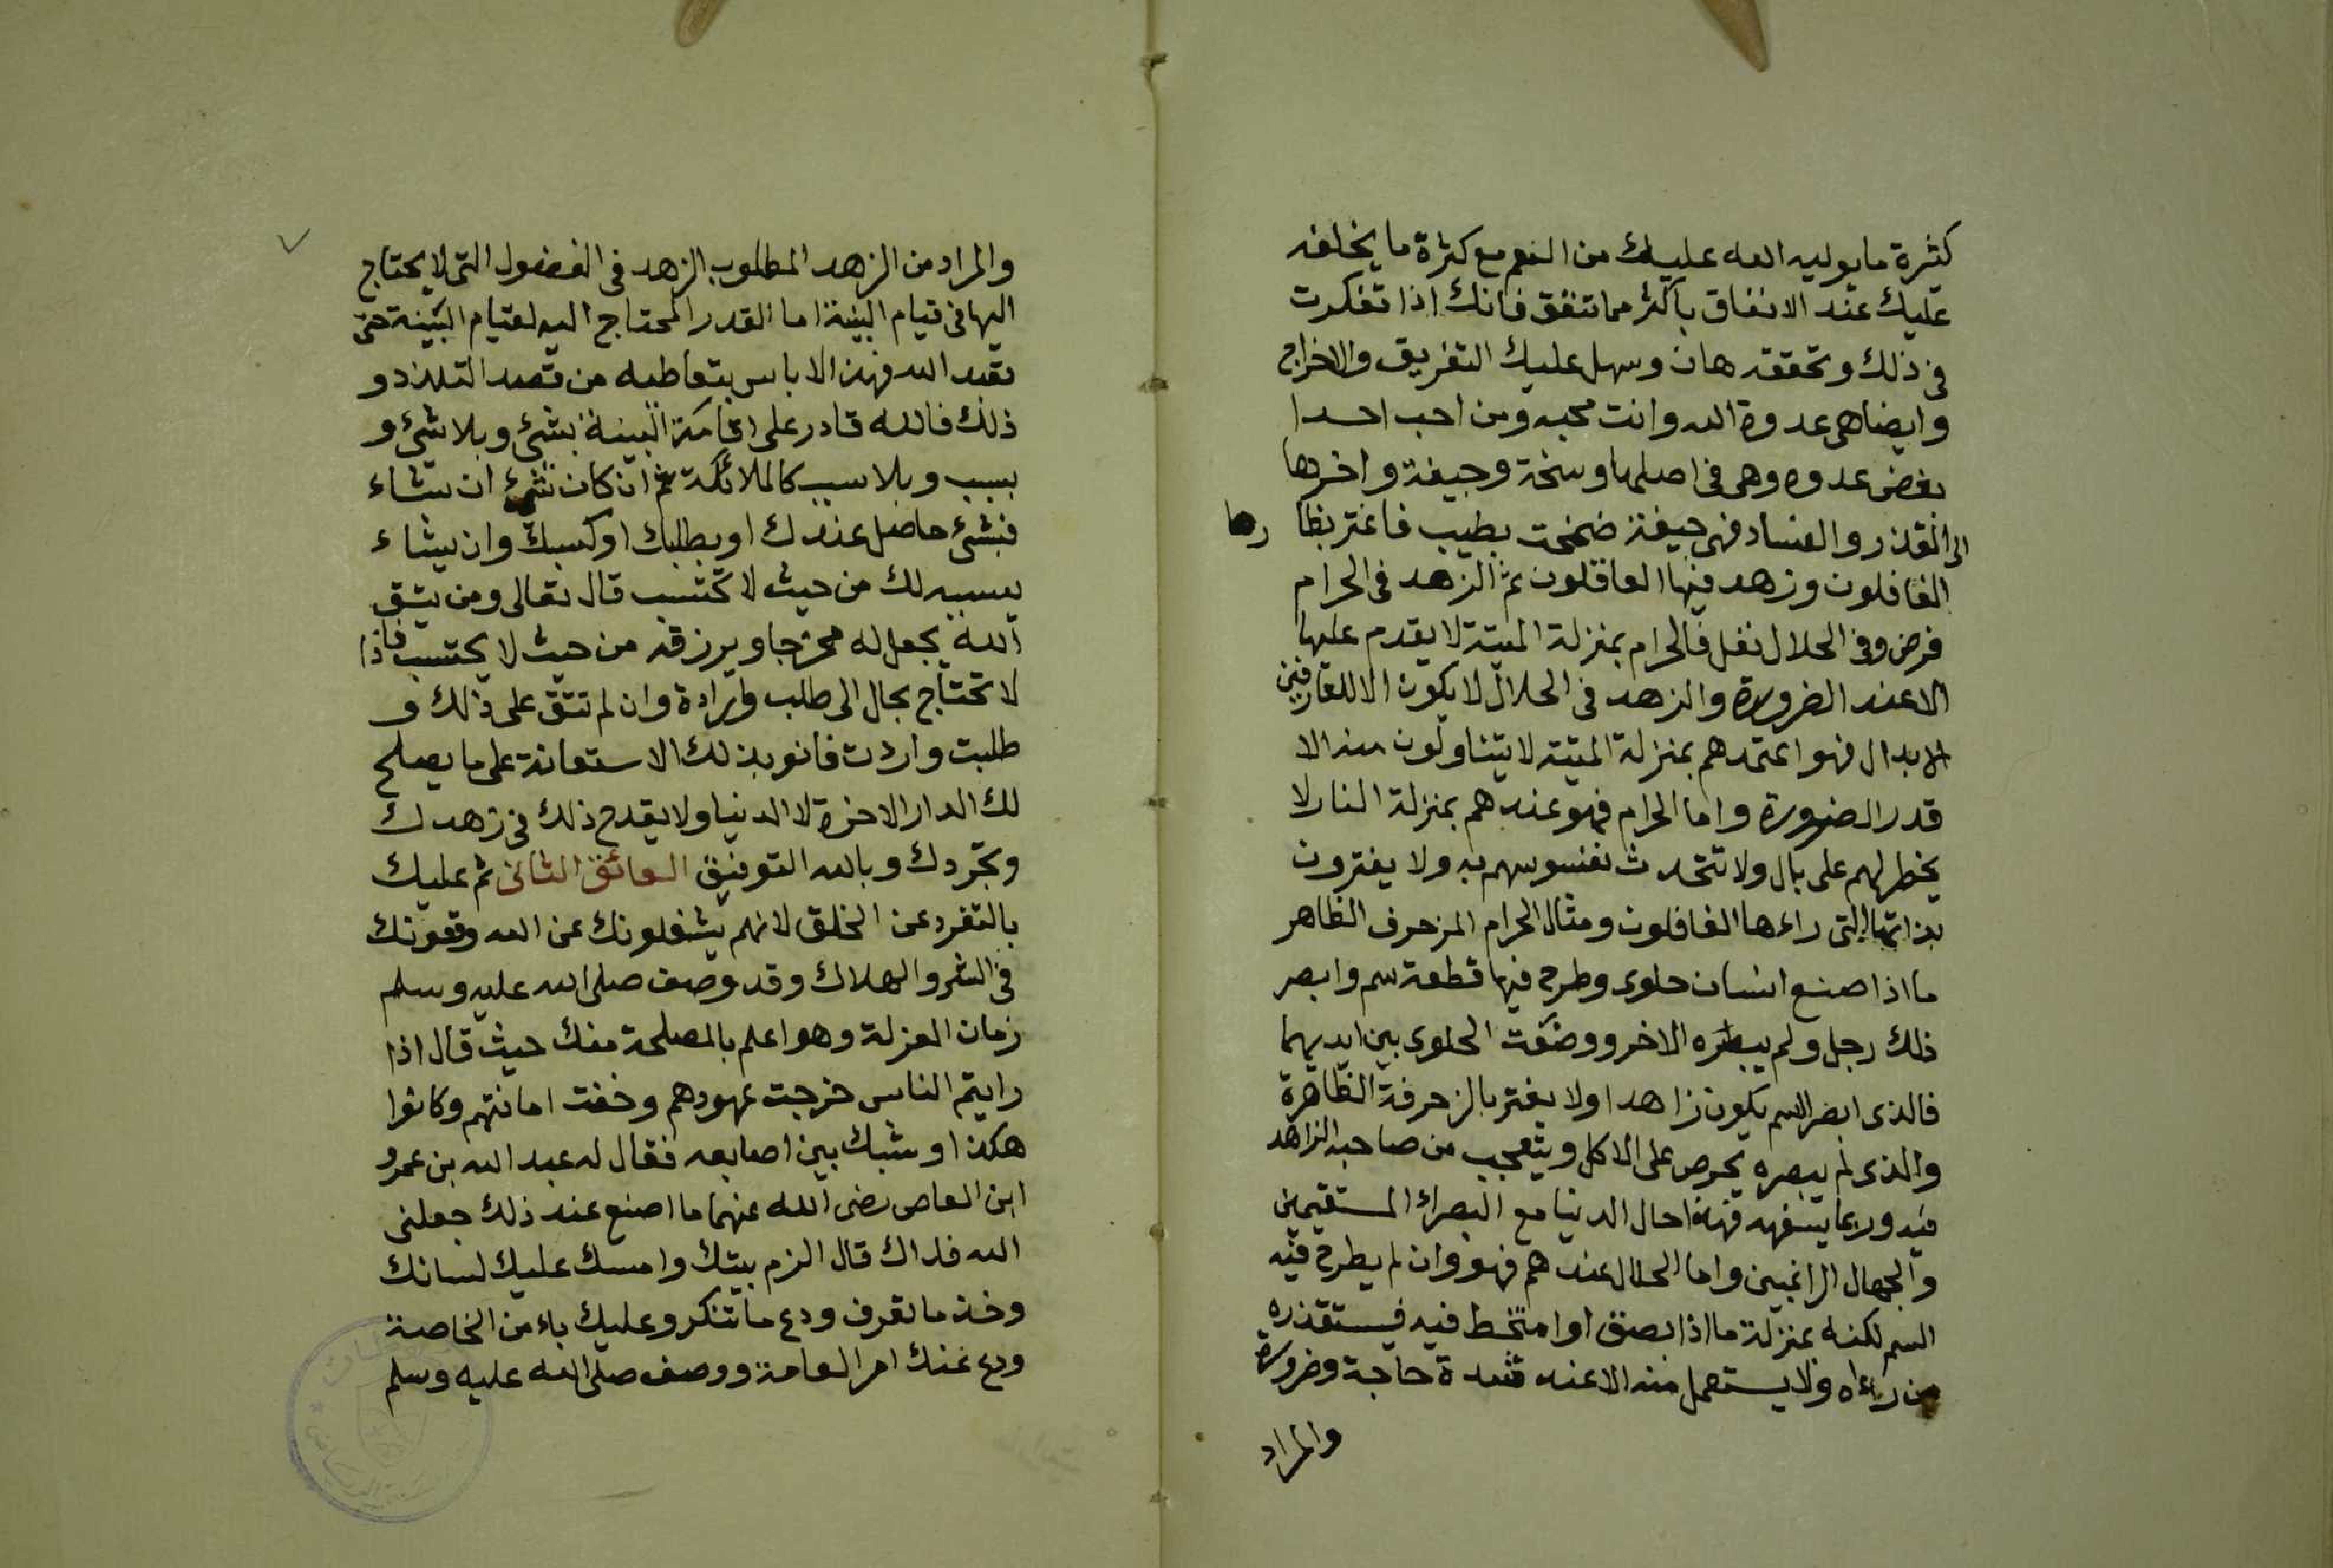 كثرة ما يوليه الله عليك من النعم مع كثرة ما يخلفه
عليك عند الانفاق باكثر مما تنفق فانك اذا تفكرت
فى ذلك وتحققه هان وسهل عليك التفريق والاخراج
وايضا هى عدوة الله وانت محبه ومن احب احدا
بغض عدوه وهى فى اصلها وسخة وجيفة واخرها
الى القذر والفساد فهى جيفة ضمخت بطيب فاغتر بظا رها
الغافلون وزهد فيها العاقلون ثم الزهد فى الحرام
فرض وفى الحلال نفل فالحرام بمنزلة الميتة لا يقدم عليها
الا عند الضرورة والزهد فى الحلال لا يكون الا للعارفين
الابدال فهو اعتمدهم بمنزلة الميتة لا يتناولون منه الا
قدر الضرورة واما الحرام فهو عندهم بمنزلة النار لا
يخطر لهم على بال ولا تتحدث نفسوسهم به ولا يغترون
بذاتها التى راءها الغافلون ومثال الحرام المزحرف الظاهر
ما اذا صنع انسان حلوى وطرح فيها قطعة سم وابصر
ذلك رجل ولم يبصره الاخر ووضعت الحلوى بين ايديهما
فالذى ابصر السم يكون زاهدا ولا يغتر بالزحرفة الظاهرة
والذى لم يبصره يحرص على الاكل ويتعجب من صاحبه الزاهد
فيه وربما يتسفهه فهذا حال الدنيا مع البصراء المستقيمين
والجهال الراغبين واما الحلال عندهم فهو وان لم يطرح فيه
السم لكنه بمنزلة ما اذا بصق او امتخط فيه فيستقذره
من راءاه ولا يستعمل منه الا عند شدة حاجة وضرورة
والمراد
والمراد من الزهد المطلوب الزهد فى الفضول التى لا يحتاج
اليها فى قيام البنية اما القدر المحتاج اليه لقيام البنية حتى
تعبد الله فهذا لا باس بتعاطيه من قصد التلذذ و
ذلك فالله قادر على اقامة البنية بشئ وبلا شئ و
بسبب وبلا سبب كالملائكة ثم ان كان بشئ ان يشاء
فبشئ حاصل عندك او بطلبك او كسبك وان يشاء
يسببه لك من حيث لا تحتسب قال تعالى ومن يتق
الله يجعل له مخرجا ويرزقه من حيث لا يحتسب فاذا
لا تحتاج بحال الى طلب وارادة وان لم تتق على ذلك و
طلبت واردت فانو بذلك الاستعانة على ما يصلح
لك الدار الاخرة لا الدنيا ولا يقدح ذلك فى زهدك
وتجردك وبالله التوفيق العائق الثانى ثم عليك
بالتفرد عن الخلق لانهم يشغلونك عن الله وقعونك
فى الشر والهلاك وقد وصف صلى الله عليه وسلم
زمان العزلة وهو اعلم بالمصلحة منك حيث قال اذا
رايتم الناس خرجت عهودهم وخفت امانتهم وكانوا
هكذا وشبك بين اصابعه فقال له عبد الله بن عمرو
ابن العاص رضى الله عنهما ما اصنع عند ذلك جعلنى
الله فداك قال الزم بيتك وامسك عليك لسانك
وخذ ما تعرف ودع ما تنكر وعليك باءمن الخاصة
ودع عنك امر العامة ووصف صلى الله عليه وسلم